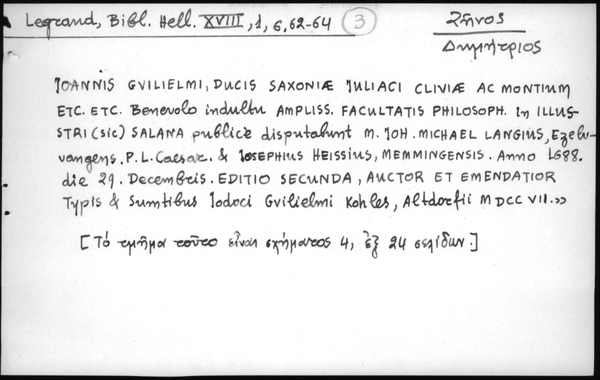 Legrand, Bibl. Hell. XVIII, 1, σ, 62-64 (3) Ζῆνος
Δημήτριος
JOANNIS GVILIELMI, DUCIS SAXONIÆ JULIACI CLIVIÆ AC MONTIUM
ETC. ETC. Benevolo indultu AMPLISS. FACULTATIS PHILOSOPH. In ILLUS-
STRI (sic) SALANA publicè disputabunt M. JOH. MICHAEL LANGIUS, Ezelu-
vangens. P. L. Caesar. & JOSEPHIUS HEISSIUS, MEMMINGENSIS. Anno 1688.
die 29. Decembris. EDITIO SECUNDA, AUCTOR ET EMENDATIOR
Typis & Sumtibus Jodoci Gvilielmi Kohles, Altdorfii MDCCVII.»
[Τό τμῆμα τοῦτο εἶναι σχήματος 4, ἐξ 24 σελίδων.]